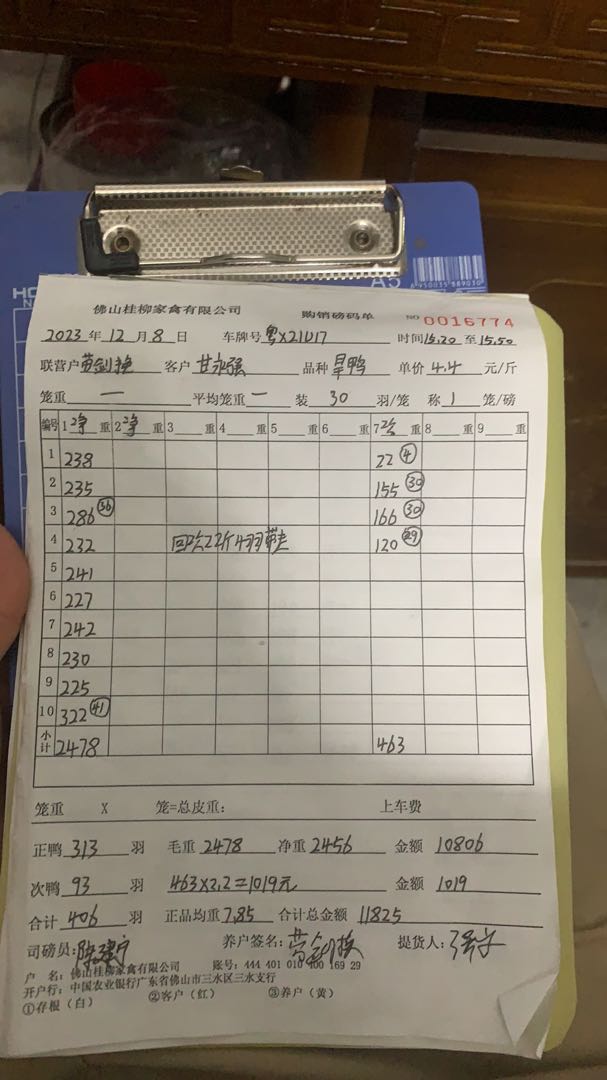 A5
6950035589030
佛山桂柳家禽有限公司 购销磅码单 NO 0016774
2023 年 12 月 8 日 车牌号 粤X21U17 时间 15.20 至 15.50
联营户 客户 甘永强 品种 旱鸭 单价 4.4 元/斤
笼重 一 平均笼重 一 装 30 羽/笼 称 1 笼/磅
编号 1 净 重 2 净 重 3 重 4 重 5 重 6 重 7 次 重 8 重 9 重
1 238 22 ④
2 235 155 ㉚
3 286 ㊱ 166 ㉚
4 232 回次22斤4羽 120 ㉙
5 241
6 227
7 242
8 230
9 225
10 322 ㊶
小计 2478 463
笼重 X 笼=总皮重: 上车费
正鸭 313 羽 毛重 2478 净重 2456 金额 10806
次鸭 93 羽 463×2.2=1019元 金额 1019
合计 406 羽 正品均重 7.85 合计总金额 11825
司磅员: 养户签名: 提货人:
户 名: 佛山桂柳家禽有限公司 账号: 444 401 010 400 169 29
开户行: 中国农业银行广东省佛山市三水区三水支行
①存根（白） ②客户（红） ③养户（黄）